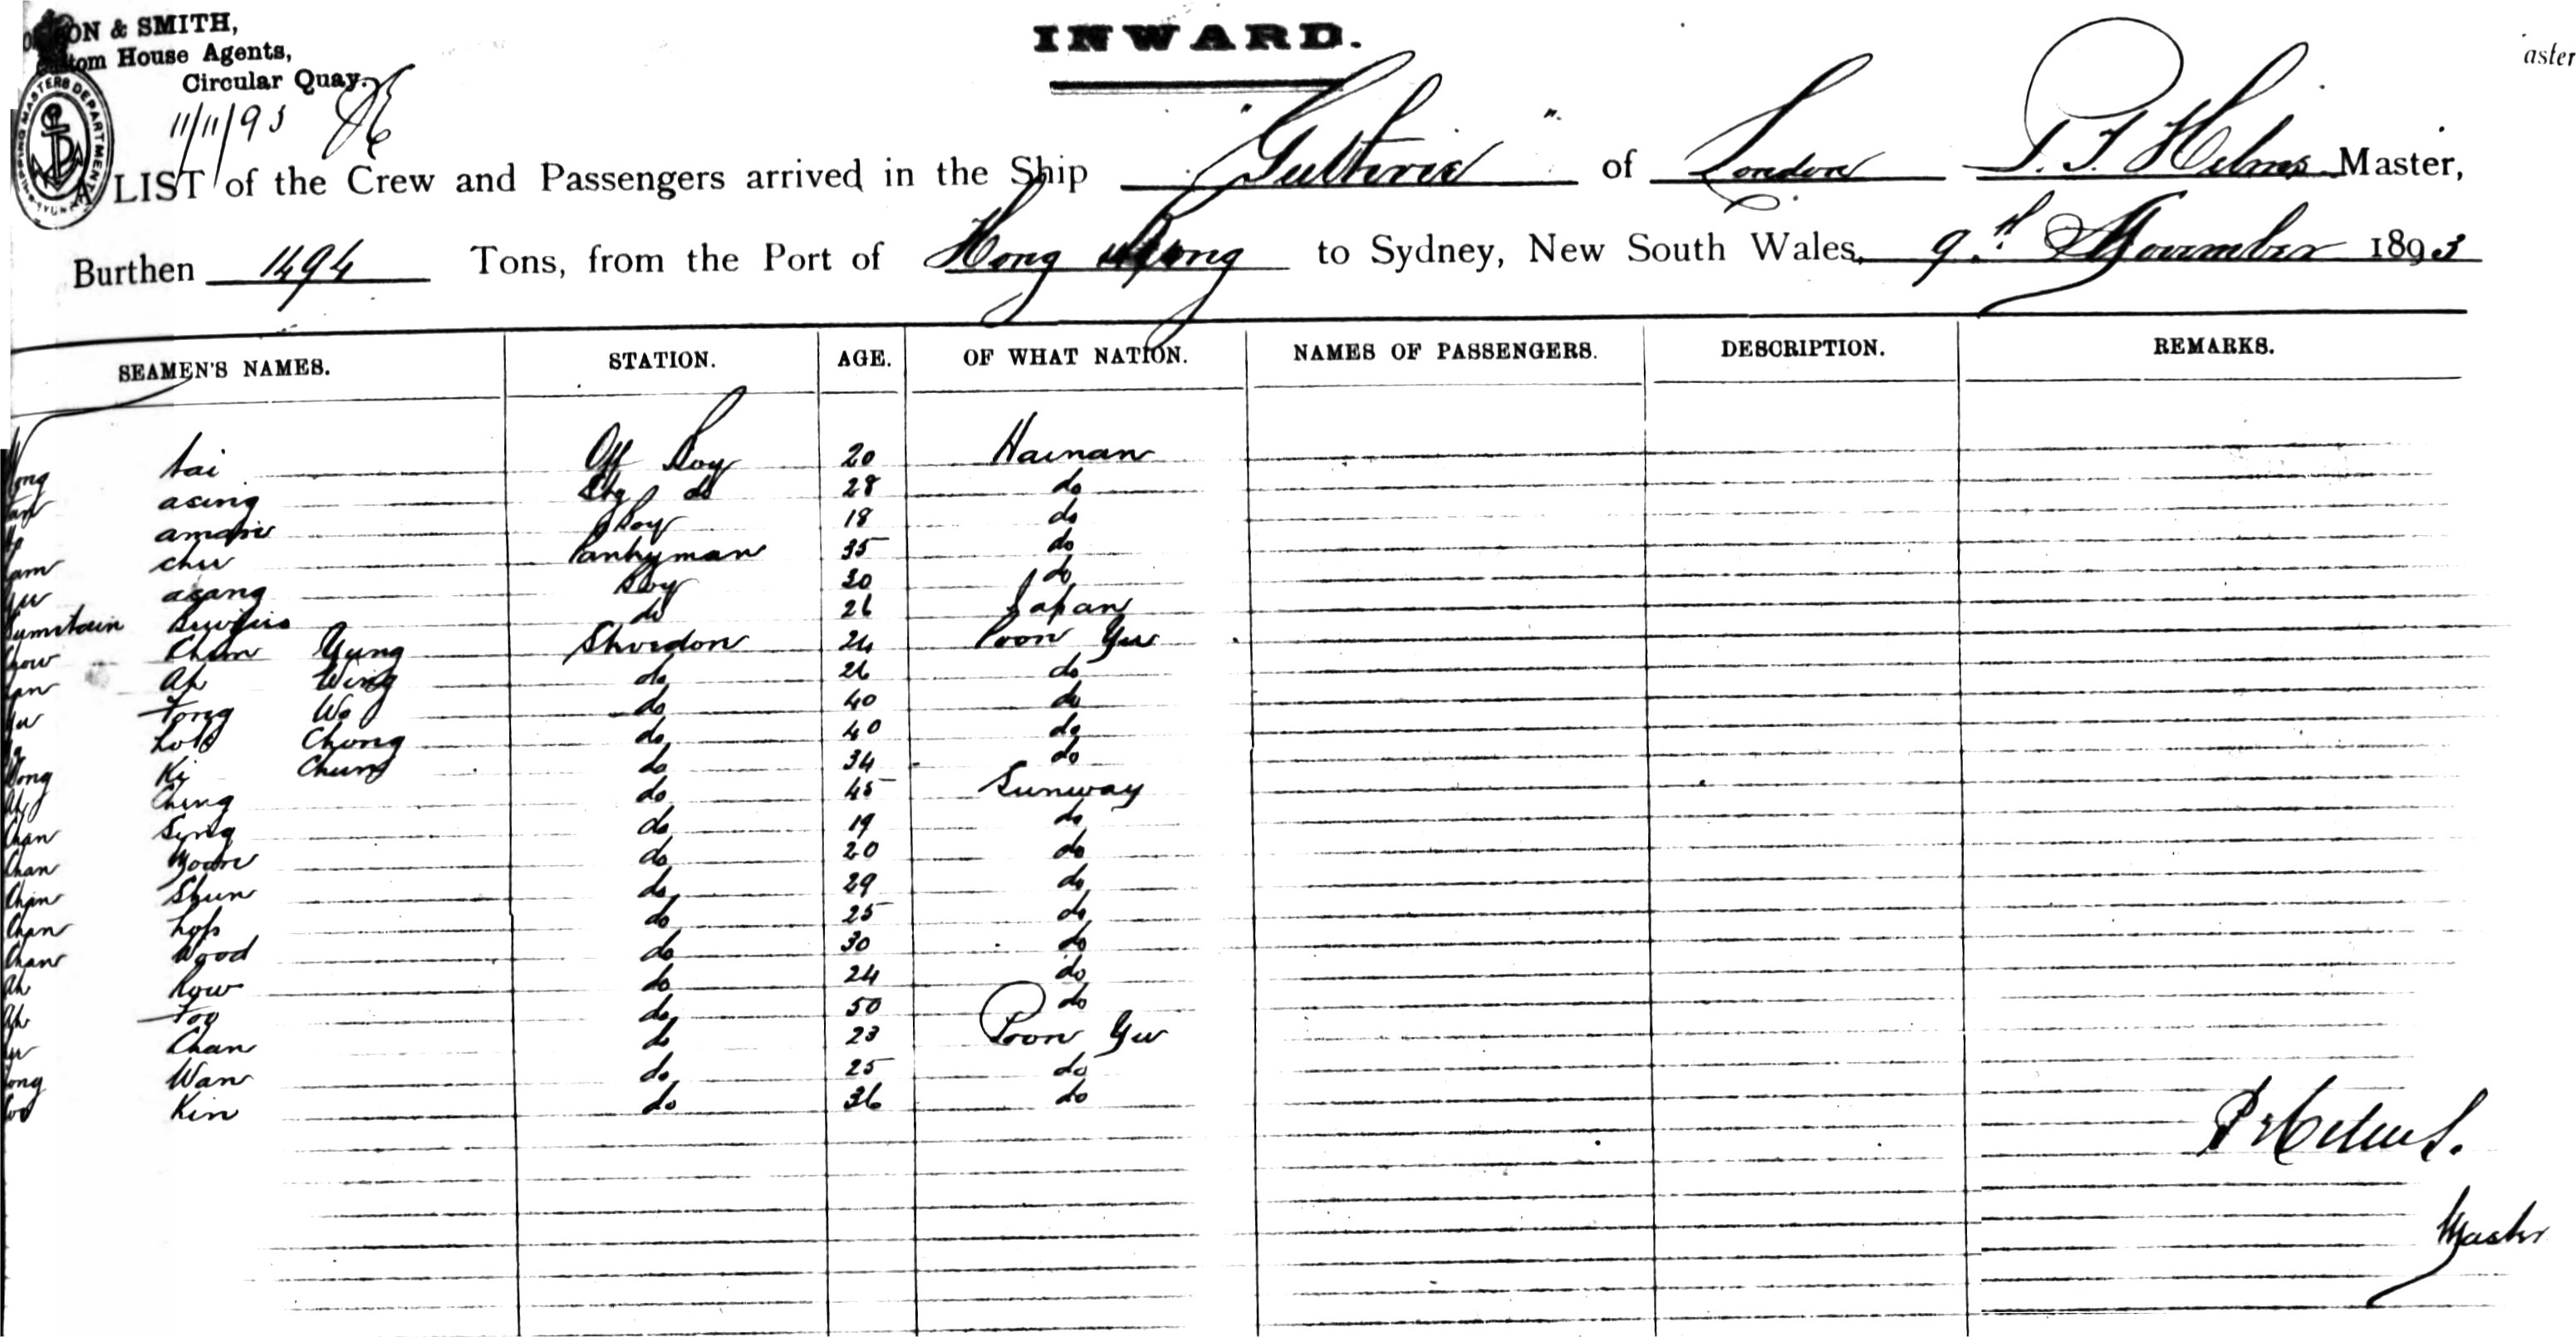 ON & SMITH,
tom House Agents,
Circular Quay.
11/11/93
SHIPPING MASTERS DEPARTMENT
INWARD.
aster
A LIST of the Crew and Passengers arrived in the Ship "Guthrie" of London P. T. Helms Master,
Burthen 1494 Tons, from the Port of Hong Kong to Sydney, New South Wales, 9th November 1893
SEAMEN'S NAMES. STATION. AGE. OF WHAT NATION. NAMES OF PASSENGERS. DESCRIPTION. REMARKS.
ong tai Off Boy 20 Hainan
asing do 28 do
Boy 18 do
am chu Pantryman 35 do
asang Boy 30 do
do 26 Japan
how Chun Yung 24 Poon Yu
an Ah Wing do 26 do
Tong Wo do 40 do
Chong do 40 do
ong Ki Chung do 34 do
Ah Ching do 45 Sunway
Chan Sing do 19 do
Chan do 20 do
Chan Shun do 29 do
Chan do 25 do
Chan Wood do 30 do
Ah Kow do 24 do
Ah Foo do 50 do
Chan do 23 Poon Yu
ong Wan do 25 do
Kin do 36 do
P T Helms.
Master